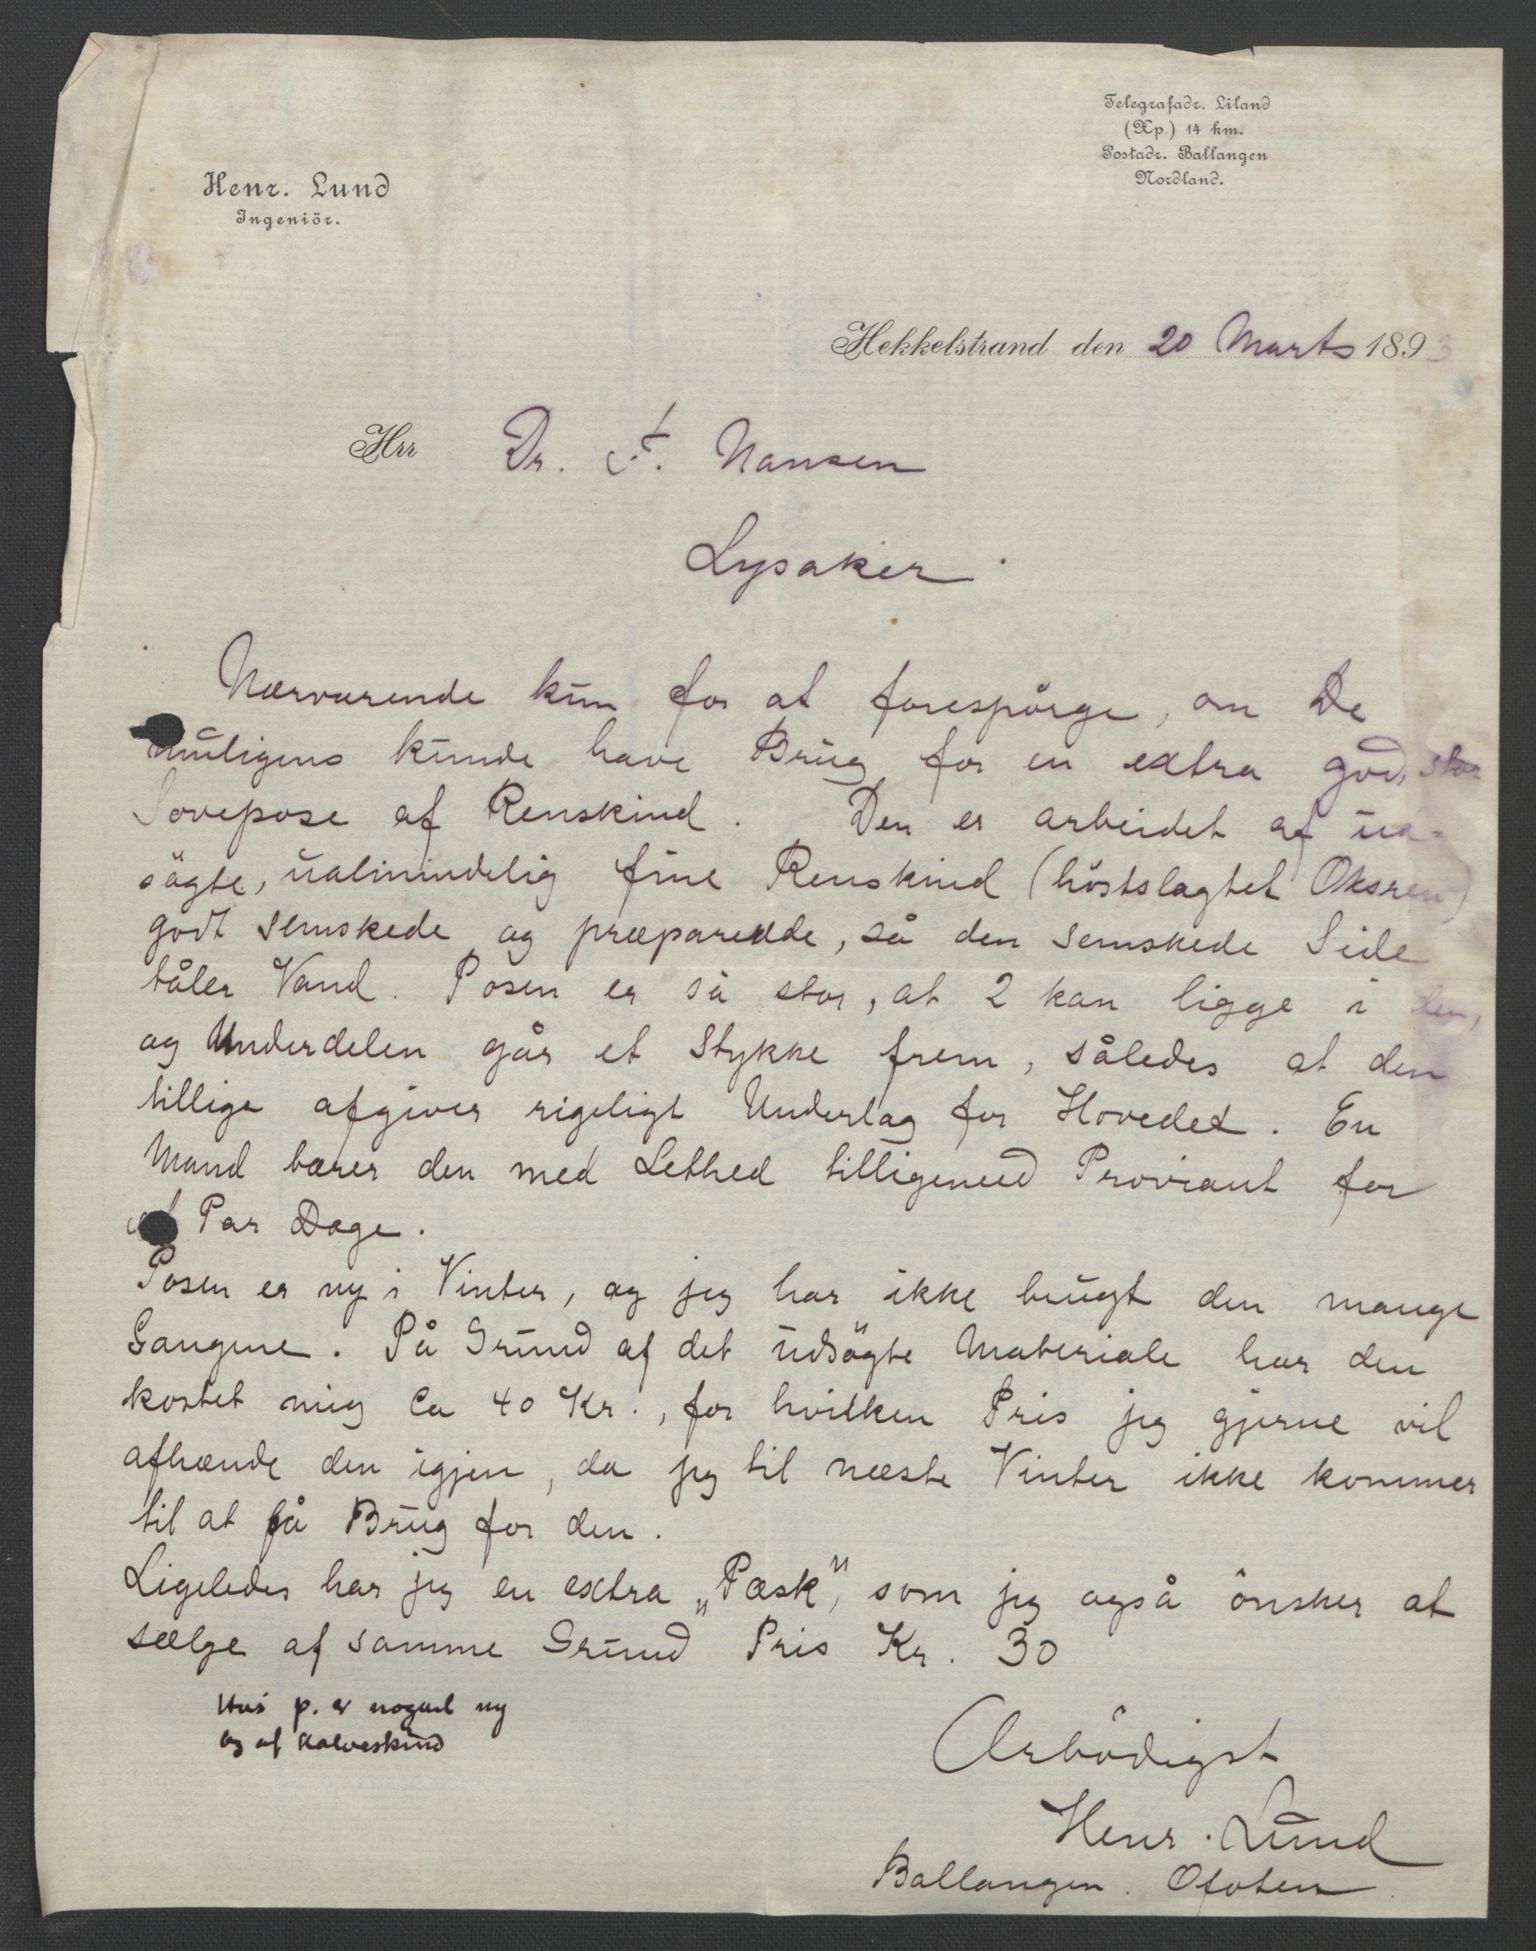 Telegrafadr. Liland
(Xp.) 14 km.
Postadr. Ballangen
Nordland.
Henr. Lund
Ingeniör.
Hekkelstrand den 20 Marts 1893
Hrr Dr. F. Nansen
Lysaker.
Nærværende kun for at forespörge, om De
muligens kunde have Brug for en extra god, stor
Sovepose af Renskind. Den er arbeidet af ud-
sögte, ualmindelig fine Renskind (höstslagtet Oksren)
godt semskede og præparedde, så den semskede Side
tåler Vand. Posen er så stor, at 2 kan ligge i den,
og Underdelen går et Stykke frem, således at den
tillige afgiver rigeligt Underlag for Hovedet. En
Mand bærer den med Lethed tilligemed Proviant for
et Par Dage.
Posen er ny i Vinter, og jeg har ikke brugt den mange
Gangene. På Grund af det udsögte Materiale har den
kostet mig Ca 40 Kr., for hvilken Pris jeg gjerne vil
afhænde den igjen, da jeg til næste Vinter ikke kommer
til at få Brug for den.
Ligeledes har jeg en extra „Pæsk", som jeg også önsker at
sælge af samme Grund Pris Kr. 30
p. er noget ny
og af Kalveskind
Arbödigst
Henr. Lund
Ballangen. Ofoten